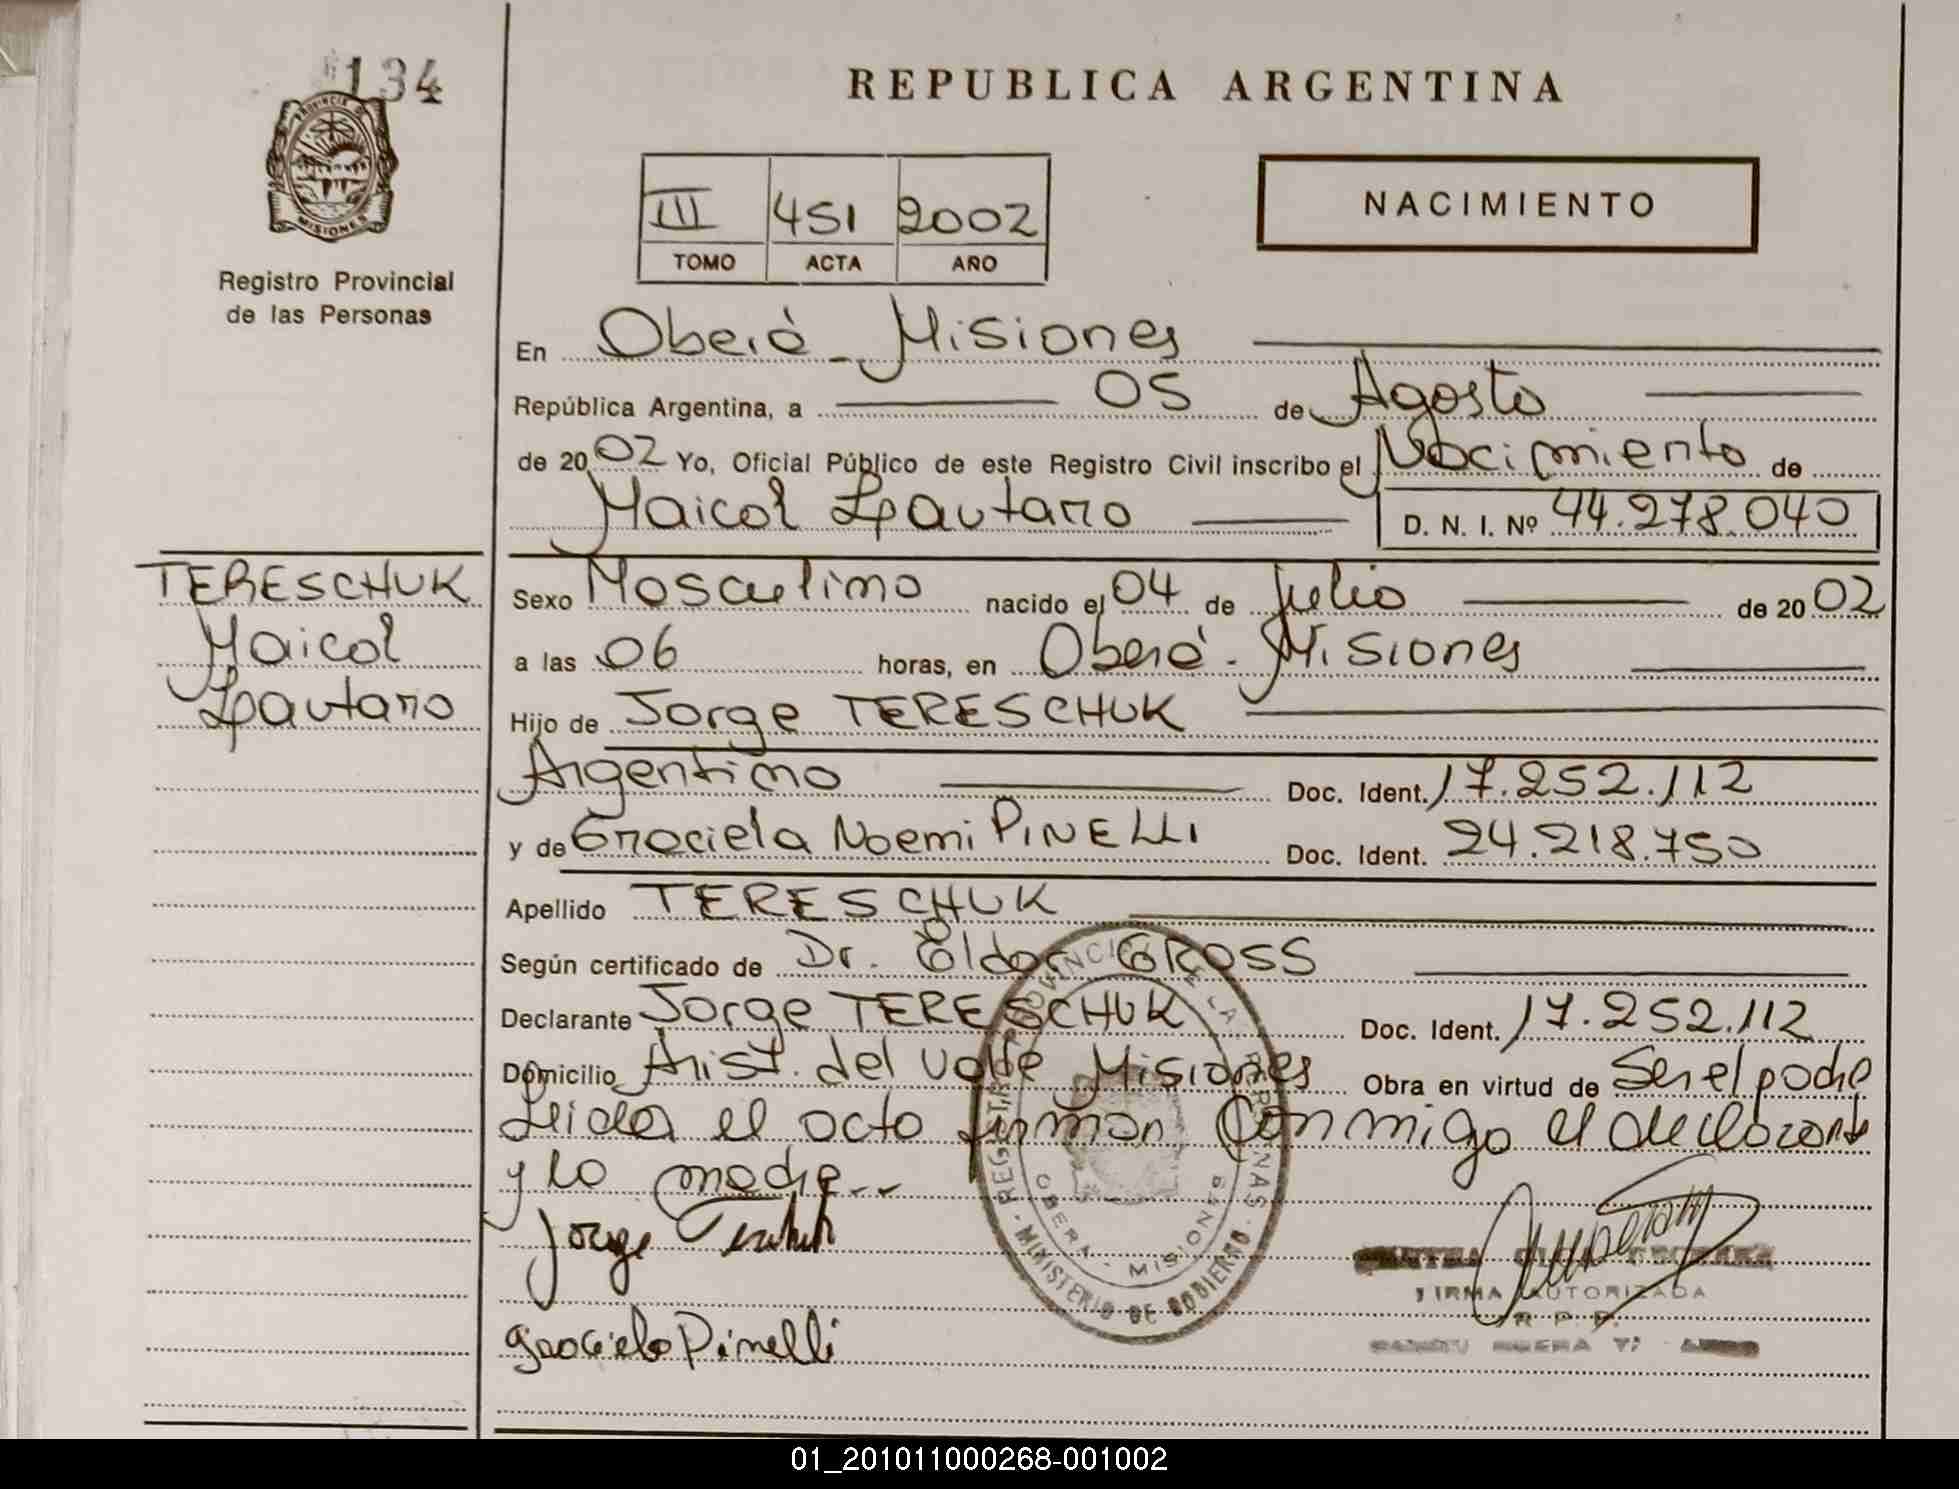 134
PROVINCIA DE
MISIONES
Registro Provincial
de las Personas
REPUBLICA ARGENTINA
III 451 2002
TOMO ACTA AÑO
NACIMIENTO
En Oberá - Misiones
República Argentina, a 05 de Agosto
de 2002 Yo, Oficial Público de este Registro Civil inscribo el Nacimiento de
Maicol Lautaro D. N. I. Nº 44.278.040
TERESCHUK
Maicol
Lautaro
Sexo Masculino nacido el 04 de Julio de 2002
a las 06 horas, en Oberá - Misiones
Hijo de Jorge TERESCHUK
Argentino Doc. Ident. 17.252.112
y de Graciela Noemi PINELLI Doc. Ident. 24.218.750
Apellido TERESCHUK
Según certificado de Dr. Eldor GROSS
Declarante Jorge TERESCHUK Doc. Ident. 17.252.112
Domicilio Arist. del Valle Misiones Obra en virtud de Ser el padre
Leida el acta firman conmigo el declarante
y la madre--
Jorge
Graciela Pinelli
REGISTRO PROVINCIAL DE LAS PERSONAS
OBERA - MISIONES
MINISTERIO DE GOBIERNO
FIRMA AUTORIZADA
R.P.P.
01_201011000268-001002